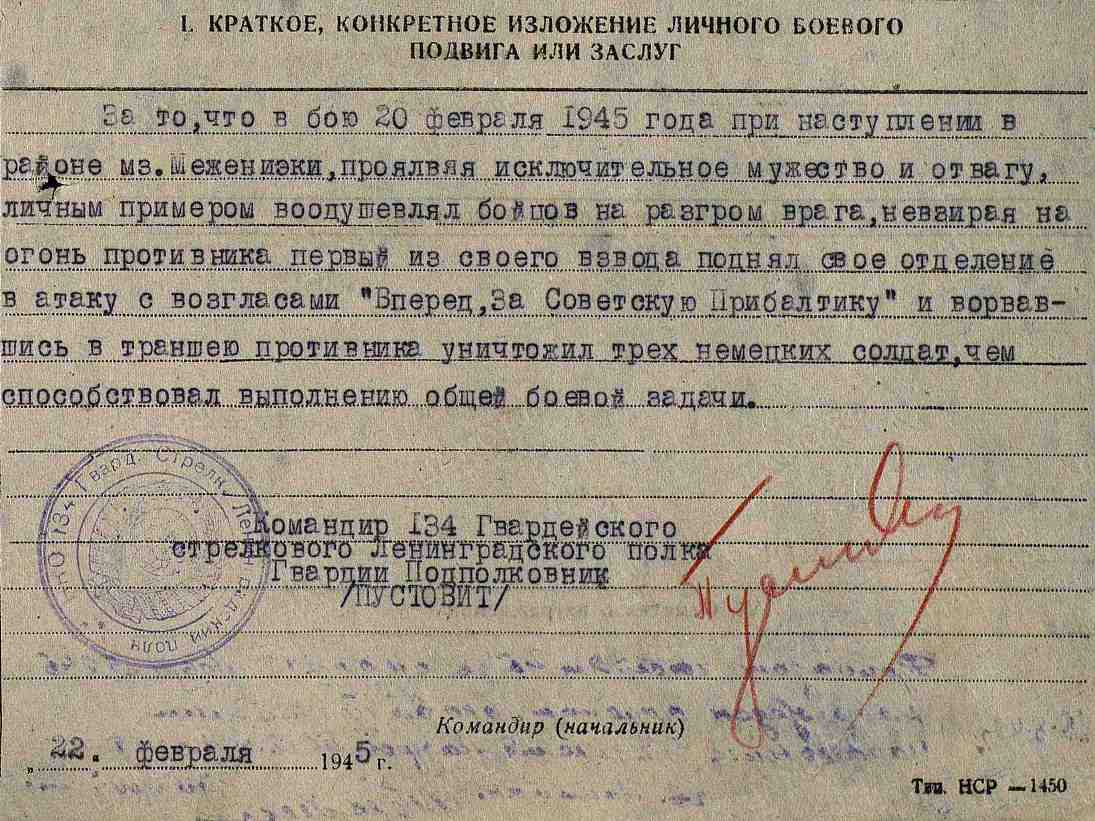 I. КРАТКОЕ, КОНКРЕТНОЕ ИЗЛОЖЕНИЕ ЛИЧНОГО БОЕВОГО
ПОДВИГА ИЛИ ЗАСЛУГ
За то,что в бою 20 февраля 1945 года при наступлении в
районе мз.Межениэки,проялвяя исключительное мужество и отвагу,
личным примером воодушевлял бойцов на разгром врага,невзирая на
огонь противника первый из своего взвода поднял свое отделение
в атаку с возгласами "Вперед,За Советскую Прибалтику" и ворвав-
шись в траншею противника уничтожил трех немецких солдат,чем
способствовал выполнению общей боевой задачи.
134 Гвард. Стрелк.
полк
Командир 134 Гвардейского
стрелкового Ленинградского полка
Гвардии Подполковник
/ПУСТОВИТ/
Командир (начальник)
„22. февраля 1945 г.
Тип. НСР — 1450